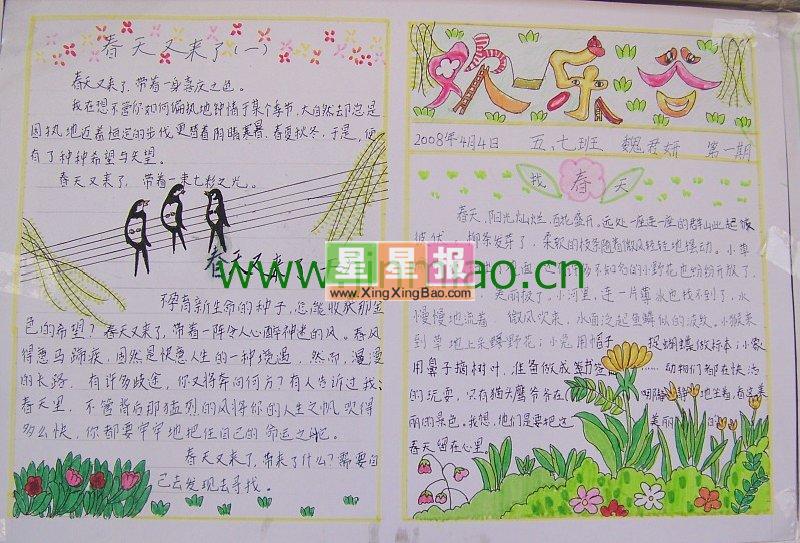 春天又来了(一)
春天又来了,带着一身喜庆之色。
我在想不管你如何偏执地钟情于某个季节,大自然却总是
固执地迈着恒定的步伐更替着阴晴寒暑、春夏秋冬,于是,便
有了种种希望与失望。
春天又来了,带着一束七彩之光。
春天又来了
不孕育新生命的种子,怎能收获那金
色的希望?春天又来了,带着一阵令人心醉神迷的风。春风
得意马蹄疾,固然是快意人生的一种境遇,然而,漫漫
的长路,有许多歧途,你又将奔向何方?有人告诉过我:
春天里,不管背后那猛烈的风将你的人生之帆吹得
多么快,你都要牢牢地把住自己的命运之舵。
春天又来了,带来了什么?需要自
己去发现去寻找。
欢乐谷
2008年4月4日 五、七班 魏君妍 第一期
找春天
春天,阳光灿烂,百花盛开。远处一座连一座的群山此起彼
伏。柳条发芽了,柔软的枝条随着微风轻轻地摆动。小草
许多不知名的小野花也纷纷开放了,
美丽极了。小河里,连一片薄冰也找不到了,水
慢慢地流着,微风吹来,水面泛起鱼鳞似的波纹。小猴来
到草地上采蝶野花;小兔用帽子捉蝴蝶做标本;小象
用鼻子摘树叶,准备做成书签……动物们都在快活
的玩耍,只有猫头鹰爷爷在静静地坐着看这美
丽的景色。我想,他们是要把这美丽的
春天留在心里。
星星报
www.XingXingBao.com